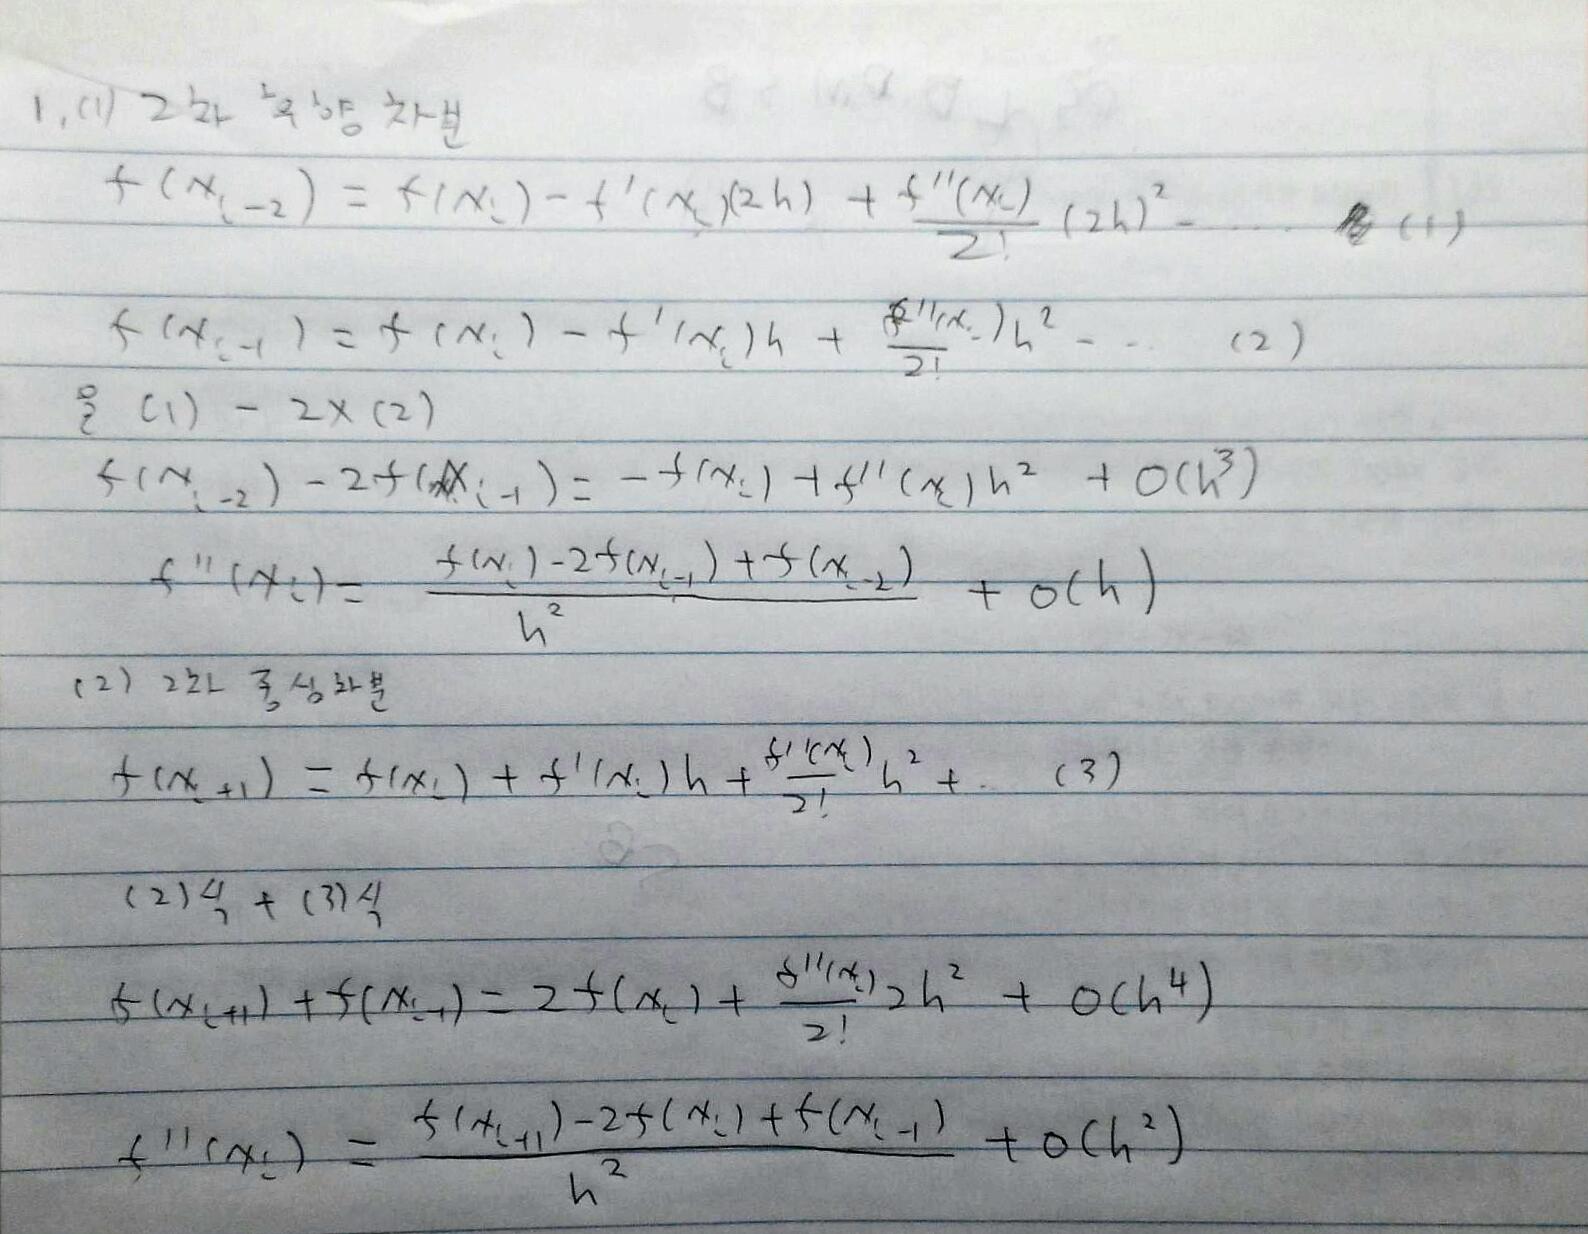 1. (1) 2차 후향 차분
f(x_{i-2}) = f(x_i) - f'(x_i)(2h) + \frac{f''(x_i)}{2!} (2h)^2 - .... (1)
f(x_{i-1}) = f(x_i) - f'(x_i)h + \frac{f''(x_i)}{2!} h^2 - ... (2)
을 (1) - 2x(2)
f(x_{i-2}) - 2f(x_{i-1}) = -f(x_i) + f''(x_i)h^2 + O(h^3)
f''(x_i) = \frac{f(x_i) - 2f(x_{i-1}) + f(x_{i-2})}{h^2} + O(h)
(2) 2차 중심차분
f(x_{i+1}) = f(x_i) + f'(x_i)h + \frac{f''(x_i)}{2!} h^2 + .. (3)
(2)식 + (3)식
f(x_{i+1}) + f(x_{i-1}) = 2f(x_i) + \frac{f''(x_i)}{2!} 2h^2 + O(h^4)
f''(x_i) = \frac{f(x_{i+1}) - 2f(x_i) + f(x_{i-1})}{h^2} + O(h^2)